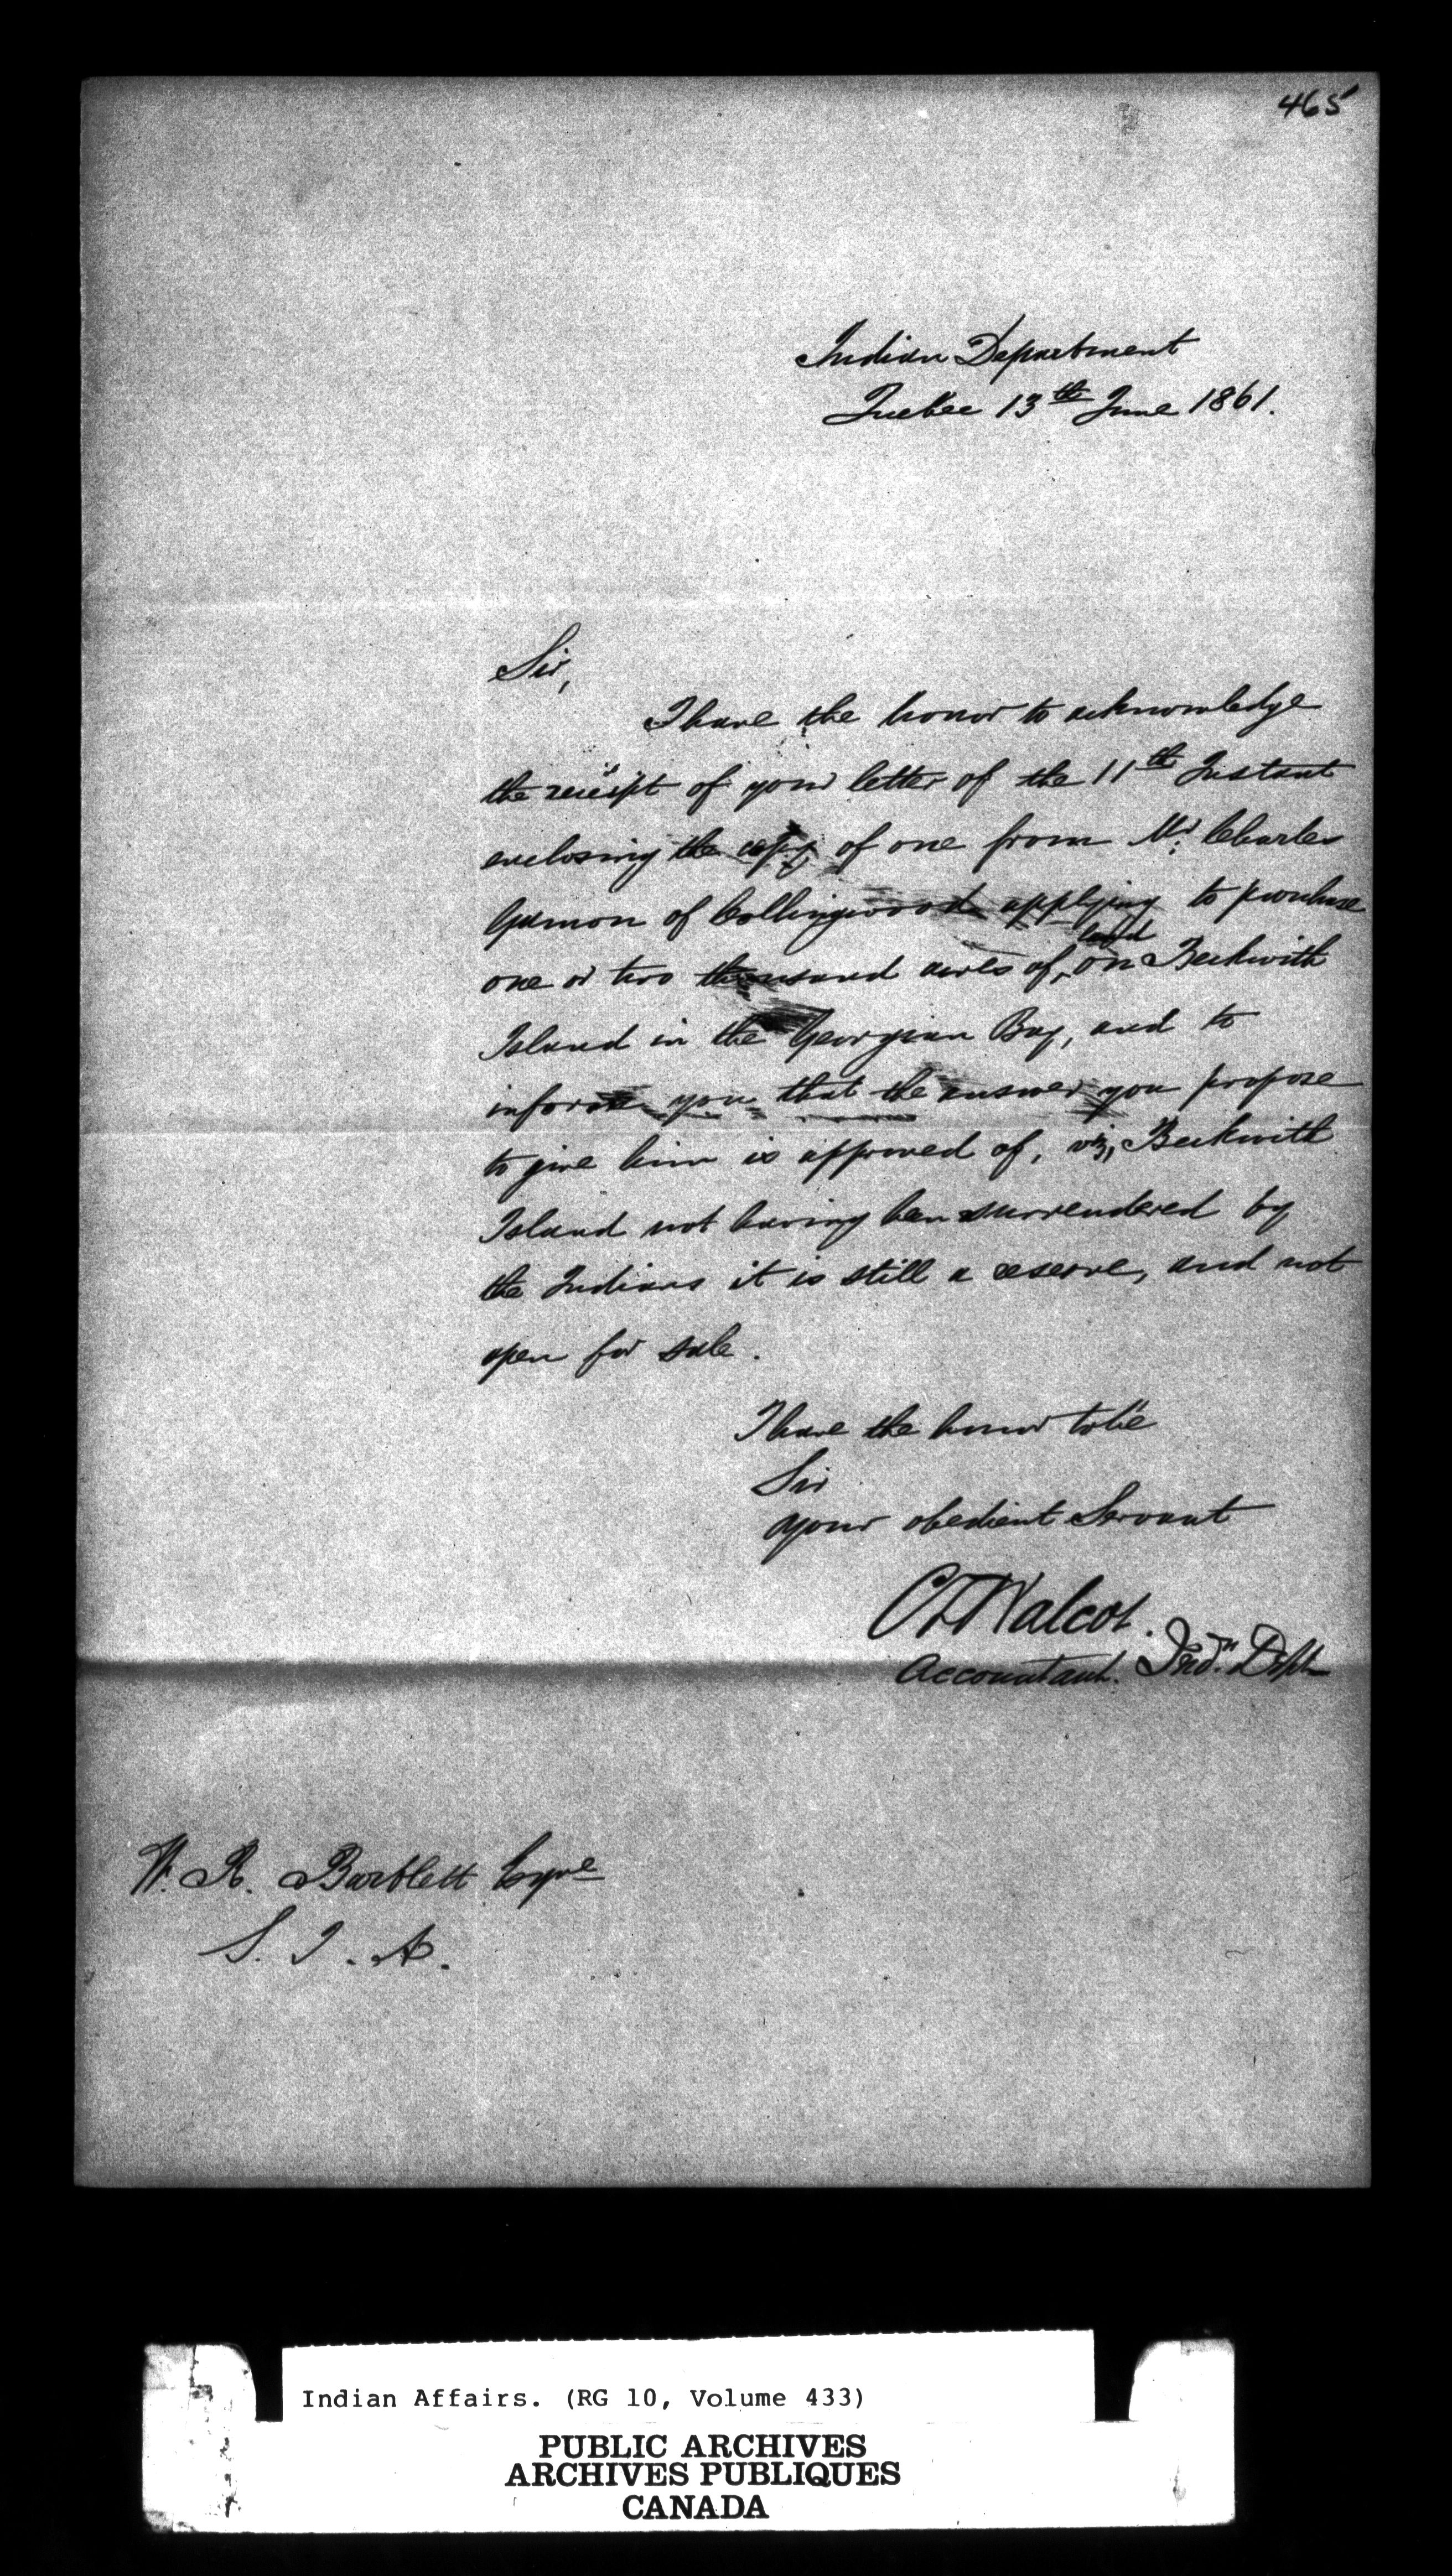 465
Indian Department
Quebec 13th June 1861.
Sir,
I have the honor to acknowledge
the receipt of your letter of the 11th Instant
enclosing the copy of one from Mr. Charles
Gamon of Collingwood applying to purchase
one or two thousand acres of land on Beckwith
Island in the Georgian Bay, and to
inform you that the answer you propose
to give him is approved of, viz, Beckwith
Island not having been surrendered by
the Indians it is still a reserve, and not
open for sale.
I have the honor to be
Sir
your obedient Servant
C T Walcot.
Accountant. Indn. Dept
W. R. Bartlett Esqre
S. I. A.
Indian Affairs. (RG 10, Volume 433)
PUBLIC ARCHIVES
ARCHIVES PUBLIQUES
CANADA